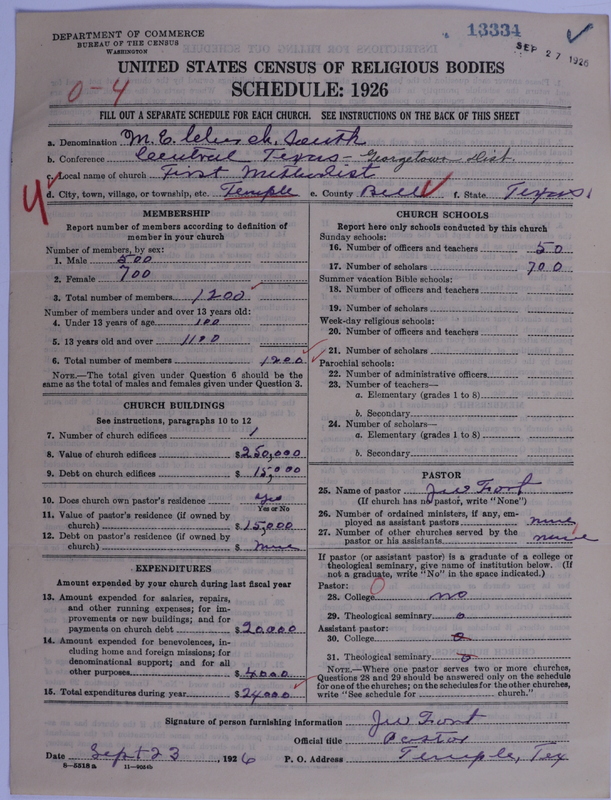 DEPARTMENT OF COMMERCE
BUREAU OF THE CENSUS
WASHINGTON
13334
SEP 27 1926
UNITED STATES CENSUS OF RELIGIOUS BODIES
SCHEDULE: 1926
0-4
FILL OUT A SEPARATE SCHEDULE FOR EACH CHURCH. SEE INSTRUCTIONS ON THE BACK OF THIS SHEET
a. Denomination M.E. Church, South
b. Conference Central Texas - Georgetown Dist.
c. Local name of church First Methodist
d. City, town, village, or township, etc. Temple e. County Bell f. State Texas
4
MEMBERSHIP
Report number of members according to definition of
member in your church
Number of members, by sex:
1. Male 500
2. Female 700
3. Total number of members 1200
Number of members under and over 13 years old:
4. Under 13 years of age 100
5. 13 years old and over 1100
6. Total number of members 1200
NOTE.—The total given under Question 6 should be the
same as the total of males and females given under Question 3.
CHURCH BUILDINGS
See instructions, paragraphs 10 to 12
7. Number of church edifices 1
8. Value of church edifices $250,000
9. Debt on church edifices $15,000
10. Does church own pastor's residence yes
Yes or No
11. Value of pastor's residence (if owned by
church) $15,000
12. Debt on pastor's residence (if owned by
church) $ none
EXPENDITURES
Amount expended by your church during last fiscal year
13. Amount expended for salaries, repairs,
and other running expenses; for im-
provements or new buildings; and for
payments on church debt $20,000
14. Amount expended for benevolences, in-
cluding home and foreign missions; for
denominational support; and for all
other purposes $4,000
15. Total expenditures during year $24,000
CHURCH SCHOOLS
Report here only schools conducted by this church
Sunday schools:
16. Number of officers and teachers 50
17. Number of scholars 700
Summer vacation Bible schools:
18. Number of officers and teachers
19. Number of scholars
Week-day religious schools:
20. Number of officers and teachers
21. Number of scholars
Parochial schools:
22. Number of administrative officers
23. Number of teachers—
a. Elementary (grades 1 to 8)
b. Secondary
24. Number of scholars—
a. Elementary (grades 1 to 8)
b. Secondary
PASTOR
25. Name of pastor J W Fort
(If church has no pastor, write "None")
26. Number of ordained ministers, if any, em-
ployed as assistant pastors none
27. Number of other churches served by the
pastor or his assistants none
If pastor (or assistant pastor) is a graduate of a college or
theological seminary, give name of institution below. (If
not a graduate, write "No" in the space indicated.)
Pastor: 0
28. College no
29. Theological seminary 0
Assistant pastor:
30. College 0
31. Theological seminary 0
NOTE.—Where one pastor serves two or more churches,
Questions 28 and 29 should be answered only on the schedule
for one of the churches; on the schedules for the other churches,
write "See schedule for church."
Signature of person furnishing information J W Fort
Official title Pastor
Date Sept 23, 1926 P. O. Address Temple, Tex
8-5518a 11-9054b